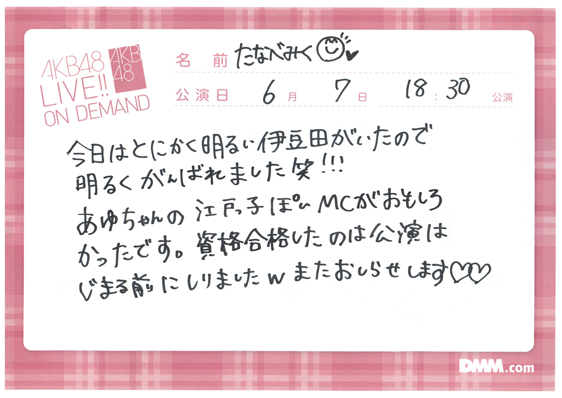 AKB48
LIVE!!
ON DEMAND
AKB
48
名 前 たなべみく
公演日 6月 7日 18:30 公演
今日はとにかく明るい伊豆田がいたので
明るくがんばれました笑!!!
あゆちゃんの江戸っ子ぽいMCがおもしろ
かったです。資格合格したのは公演は
じまる前にしりましたwまたおしらせします♡♡
DMM.com